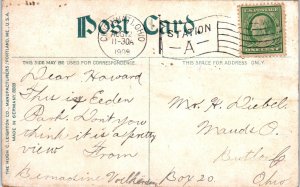 Post Card
CINCINNATI, OHIO
11-30A
1909
STATION
A
THIS SIDE MAY BE USED FOR CORRESPONDENCE.
THIS SPACE FOR ADDRESS ONLY.
THE HUGH C. LEIGHTON CO., MANUFACTURERS, PORTLAND, ME., U.S.A.
MADE IN GERMANY
Dear Howard
This is Eden
Park. Dont you
think it is a pretty
view. From
Bernadine
Mr. H. Diebel
Maude
Butler
Box 20. Ohio